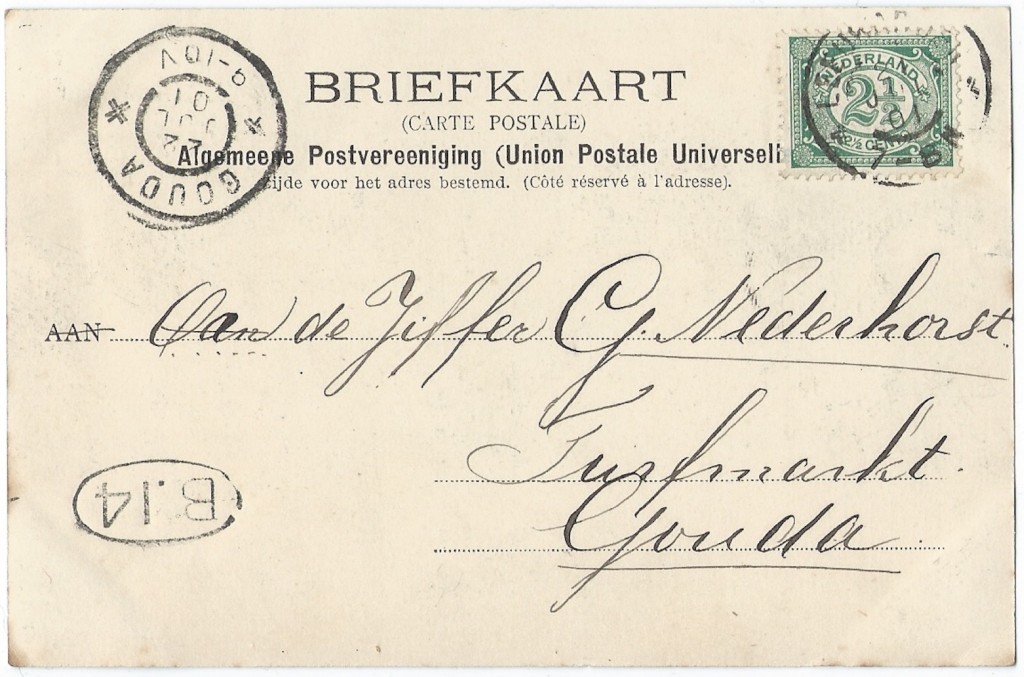 BRIEFKAART
(CARTE POSTALE)
Algemeene Postvereeniging (Union Postale Universell
Zijde voor het adres bestemd. (Côté réservé à l'adresse).
GOUDA
9-10V
JUL
01
NEDERLAND
2½
2½ CENT
7-8N
AAN Aan de Jiffer G. Nederhorst
Turfmarkt.
Gouda
B.14